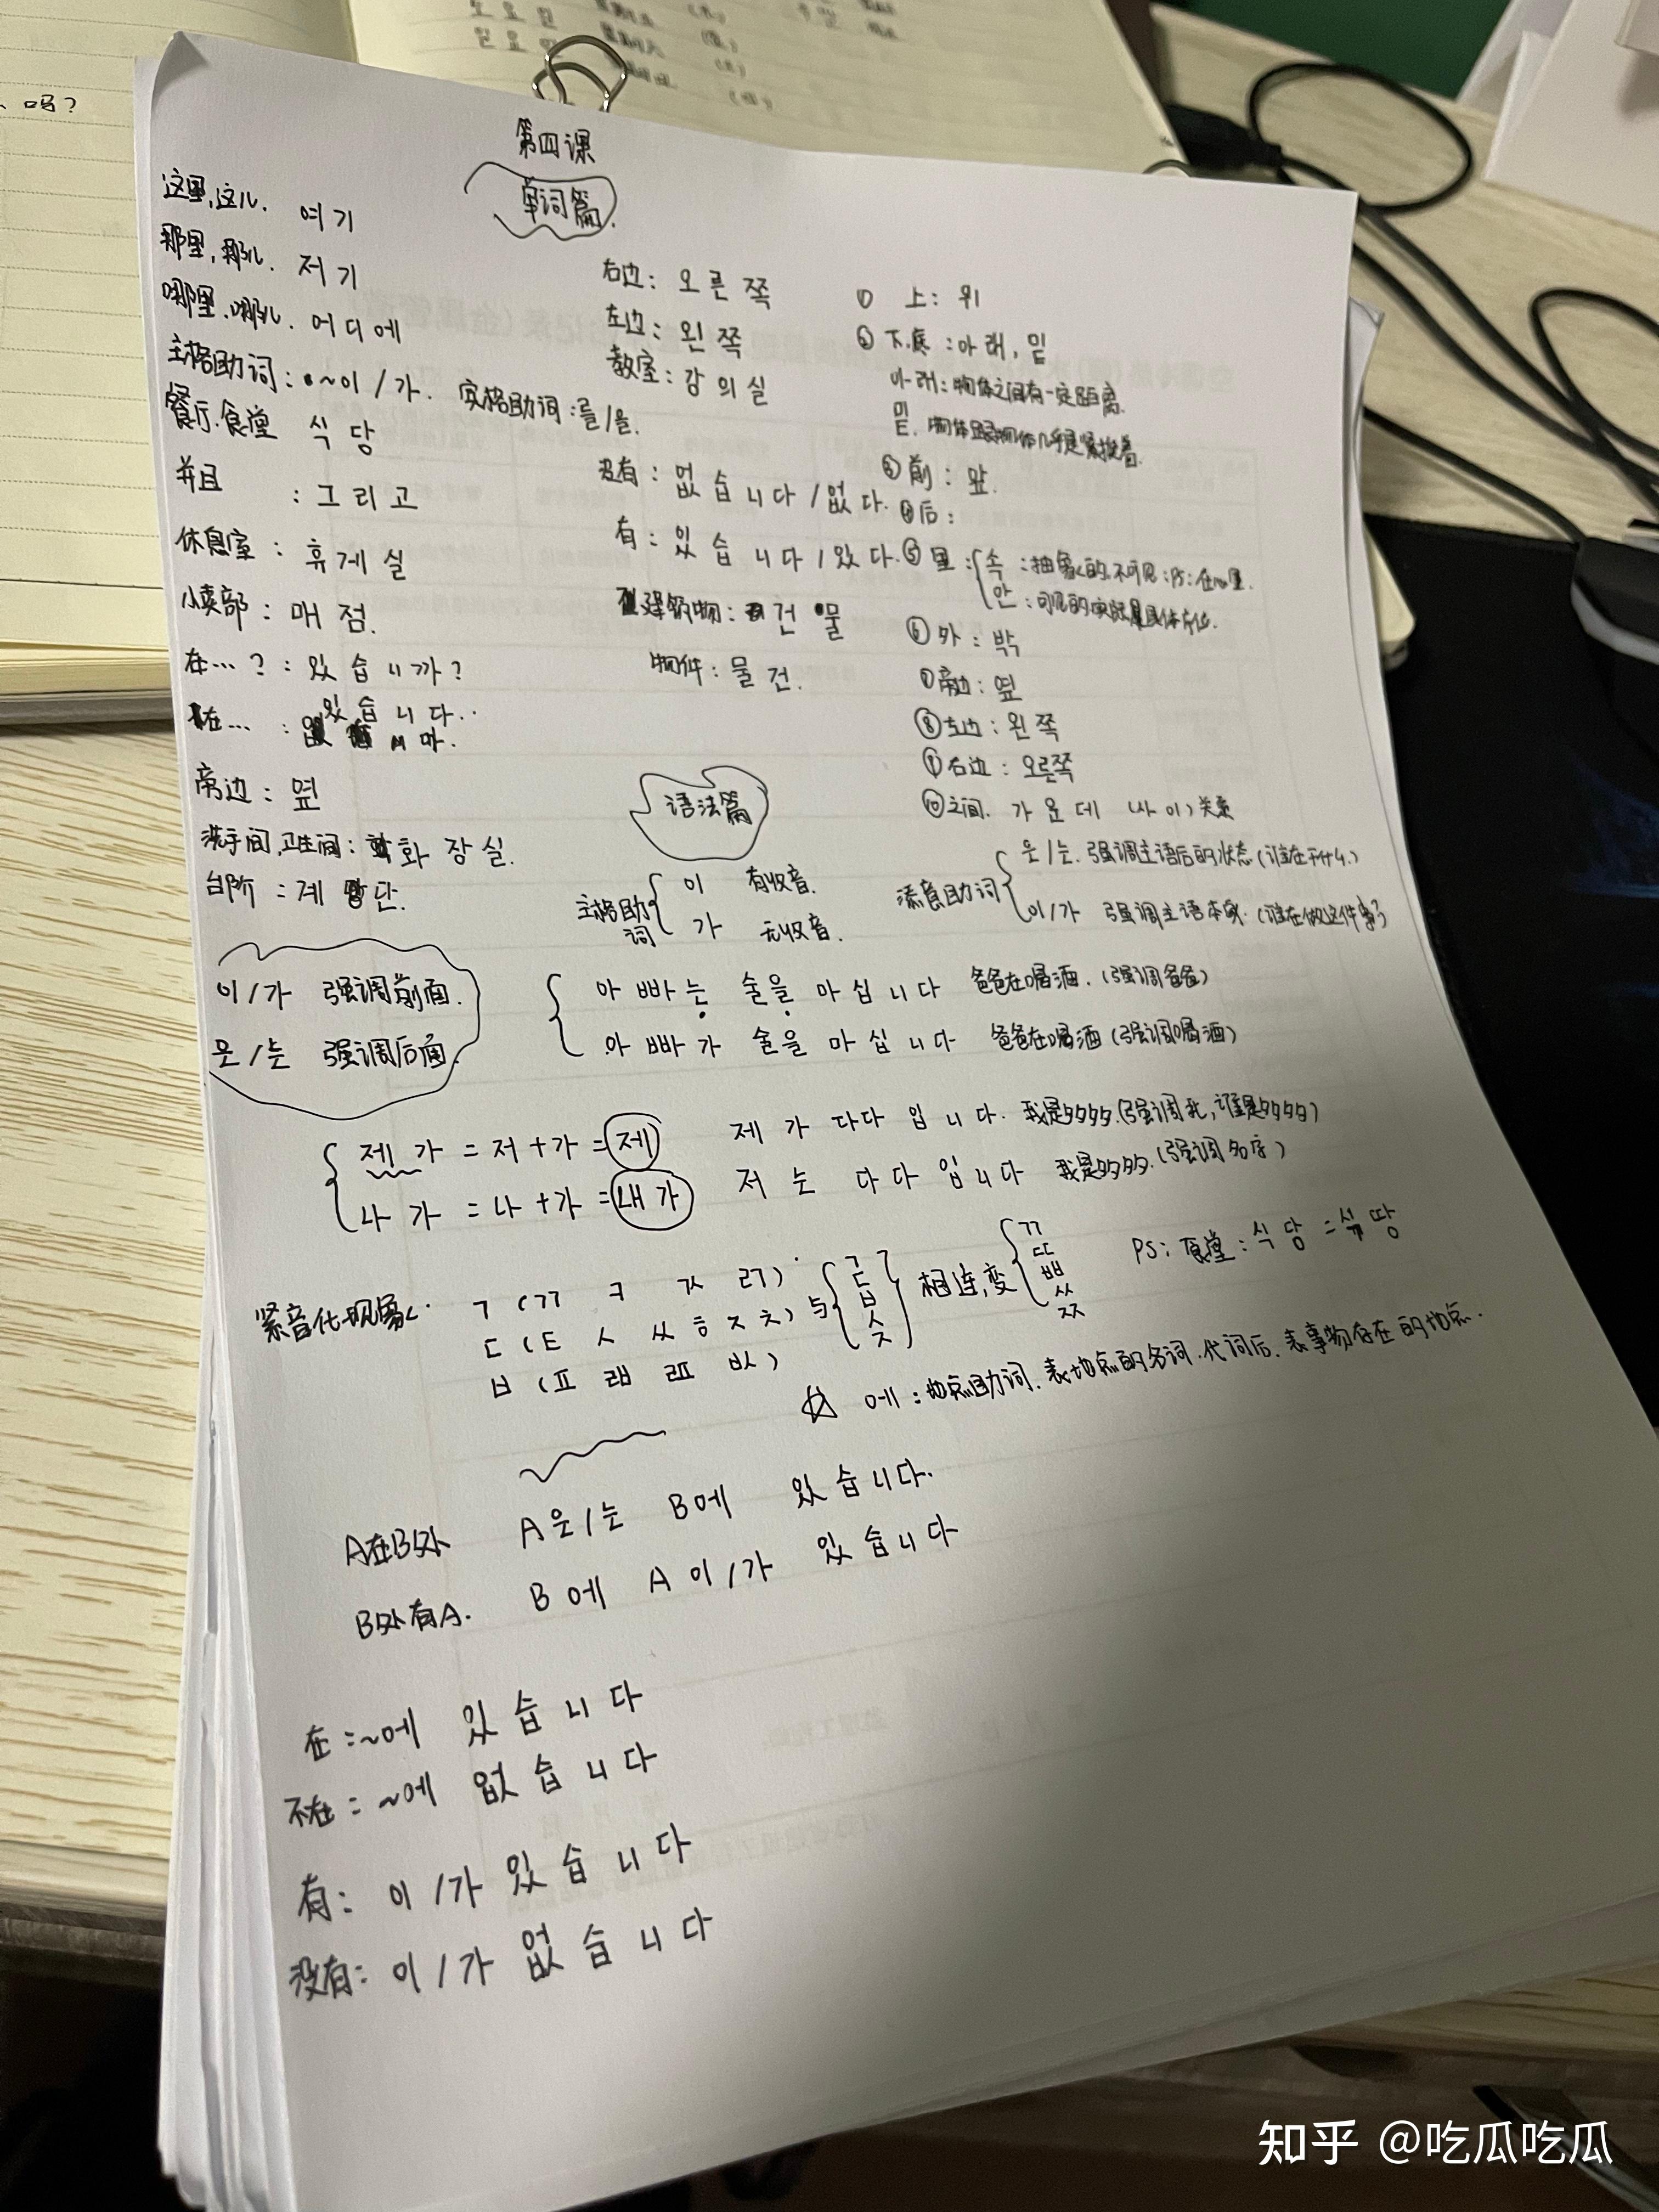 吗?
토요일
일요일
第四课
单词篇.
这里,这儿. 여기
那里,那儿. 저기
哪里.哪儿. 어디에
主格助词: ~이/가. 宾格助词:를/을.
餐厅.食堂 식당
并且 : 그리고
休息室 : 휴게실
小卖部 : 매점.
在…? : 있습니까?
在… : 있습니다..
旁边 : 옆
洗手间,卫生间: 화장실.
台阶 = 계단.
右边: 오른쪽
左边: 왼쪽
教室: 강의실
没有: 없습니다/없다.
有: 있습니다/있다.
建筑物: 건물
物件: 물건.
① 上: 위
② 下.底 :아래, 밑
아래: 物体之间有一定距离.
밑. 物体跟物体几乎是紧挨着.
③ 前: 앞.
④后:
⑤ 里: 속 :抽象的.不可见:PS:在心里.
안 : 可见的实际具体方位.
⑥ 外: 박
⑦旁边: 옆
⑧左边: 왼쪽
⑨右边: 오른쪽
⑩之间. 가운데 (사이)关系
语法篇
主格助词 이 有收音.
가 无收音.
添意助词 은/는. 强调主语后的状态(谁在干什么)
이/가 强调主语本身.(谁在做这件事)
이/가 强调前面.
은/는 强调后面.
아빠는 술을 마십니다 爸爸在喝酒.(强调爸爸)
아빠가 술을 마십니다 爸爸在喝酒(强调喝酒)
제가 = 저+가 = 제 제가 다다입니다. 我是多多.(强调我,谁是多多)
나가 = 나+가 = 내가 저는 다다입니다 我是多多.(强调名字)
紧音化现象: ㄱ (ㄲ ㅋ ㄳ ㄺ)
ㄷ (ㅌ ㅅ ㅆ ㅎ ㅈ ㅊ) 与 ㄱ ㄷ ㅂ ㅅ ㅈ 相连,变 ㄲ ㄸ ㅃ ㅆ ㅉ PS: 食堂: 식당 = 식땅
ㅂ (ㅍ ㄼ ㄿ ㅄ)
☆ 에 : 地点助词.表地点的名词.代词后.表事物存在的地点.
A在B处 A은/는 B에 있습니다.
B处有A. B에 A이/가 있습니다
在:~에 있습니다
不在:~에 없습니다
有: 이/가 있습니다
没有: 이/가 없습니다
知乎 @吃瓜吃瓜